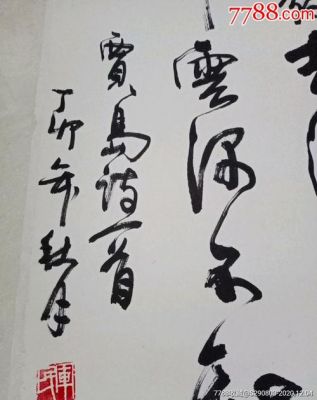 7788.com
去
雲深不知
賈島詩一首
丁卯年秋月
2020.12.04